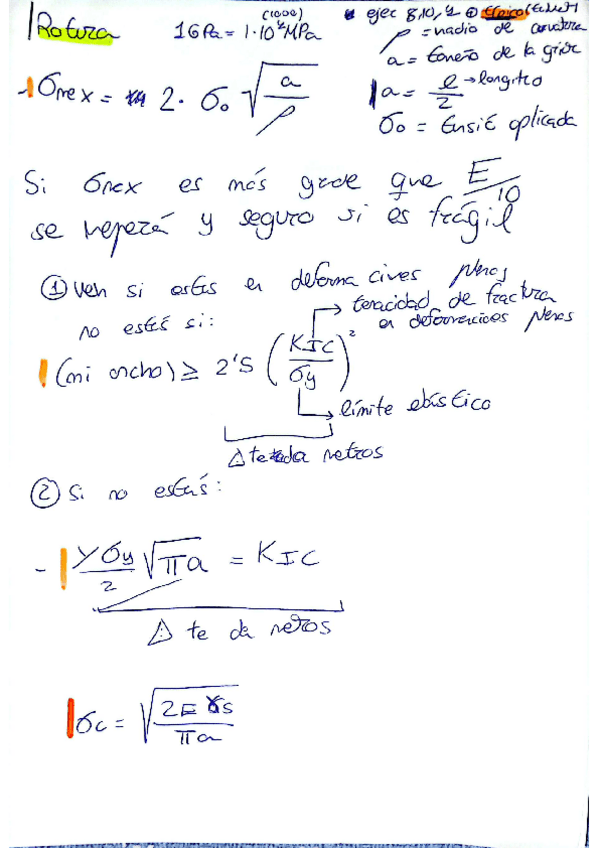 Rotura
1GPa = 1·10³MPa
(1000)
ejer 8,10,
ρ = radio de curvatura
a = tamaño de la grieta
a = l/2 → longitud
σ₀ = tensión aplicada
σmax = 2· σ₀ √(a/ρ)
Si σmax es más grande que E/10
se romperá y seguro si es frágil
① Ver si estás en deformaciones planas
no estás si:
→ tenacidad de fractura
en deformaciones planas
! (mi ancho) ≥ 2'5 (KIC/σy)²
→ límite elástico
△ te da metros
② Si no estás:
- Yσy/2 √πa = KIC
△ te da metros
σc = √(2Eγs/πa)